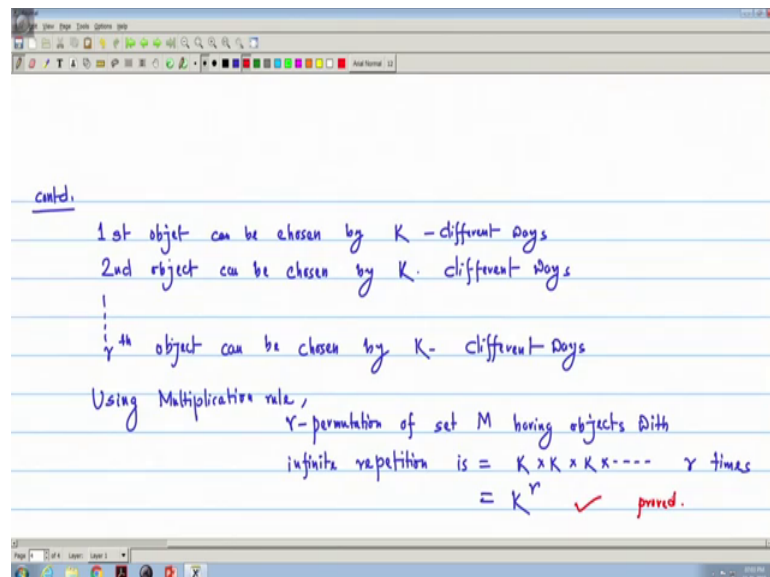 View Page Tools Options Help
Arial Normal 12
contd.
1st objet can be chosen by K - different ways
2nd object can be chosen by K. different ways
rth object can be chosen by K- different ways
Using Multiplication rule,
r-permutation of set M having objects with
infinite repetition is = K × K × K × ---- r times
= K^r ✓ proved.
Page 4 of 4 Layer: Layer 1